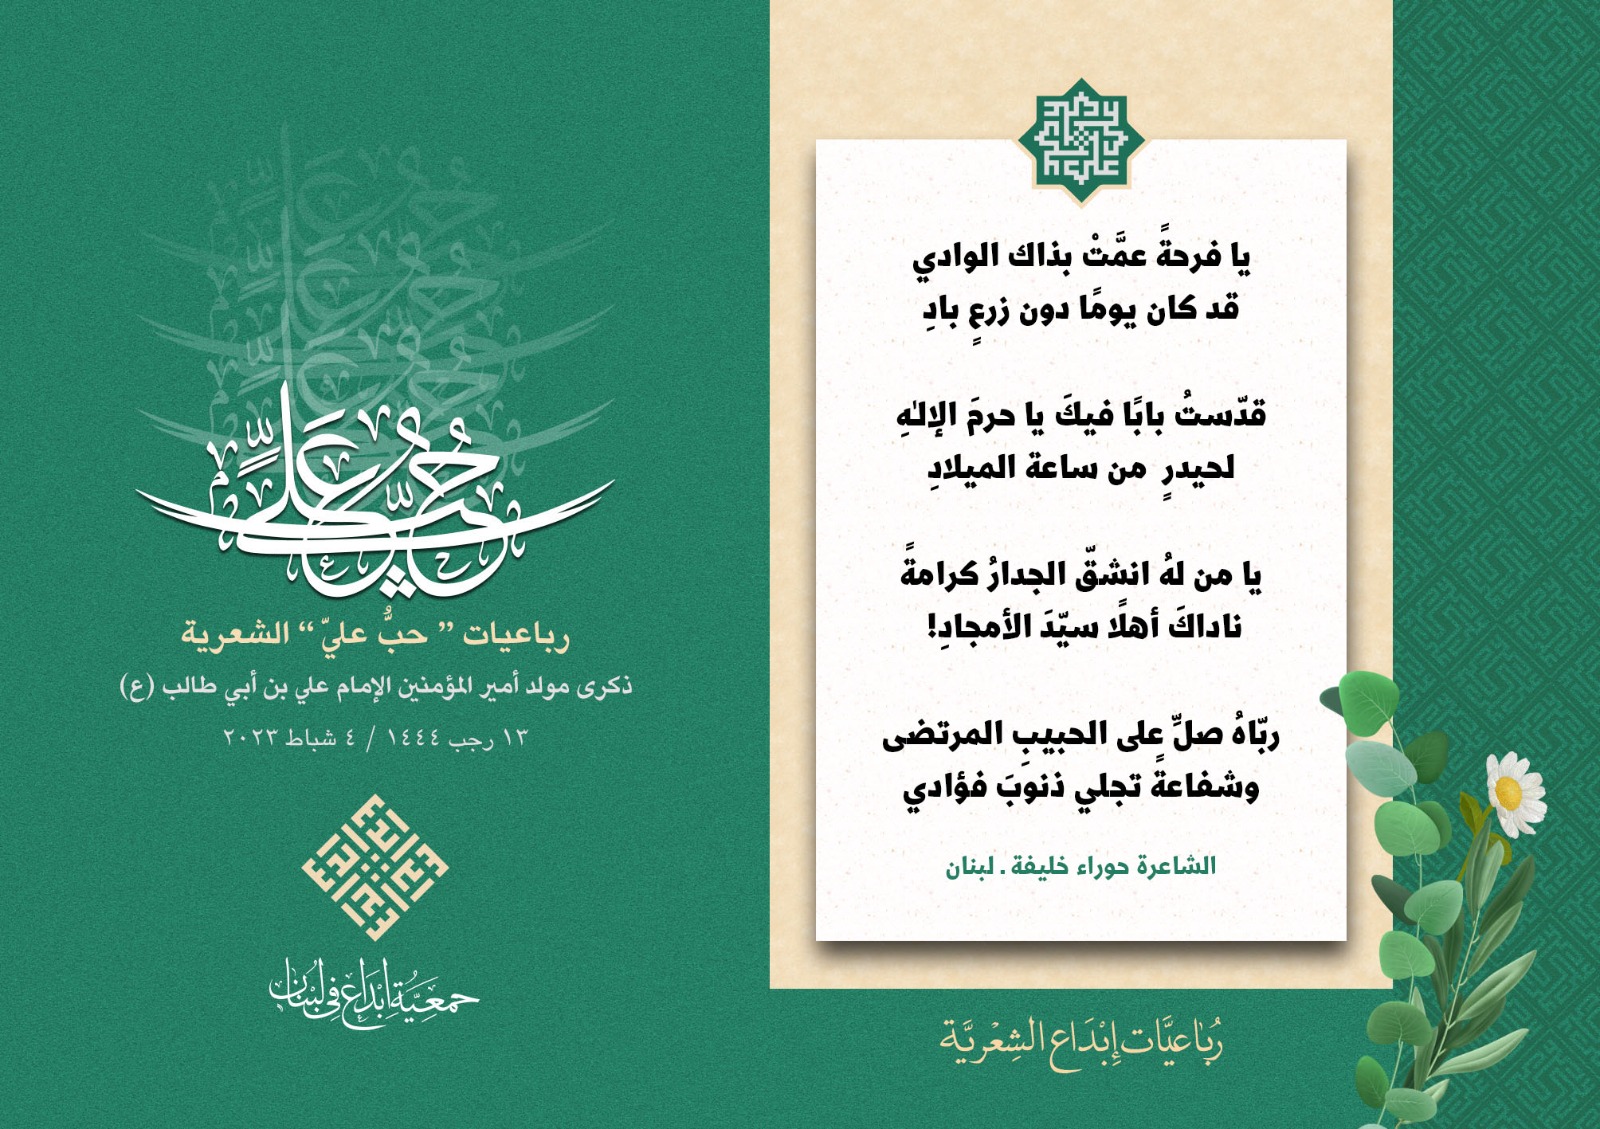 يا فرحةً عمَّتْ بذاك الوادي
قد كان يومًا دون زرعٍ بادِ
قدّستُ بابًا فيكَ يا حرمَ الإلهِ
لحيدرٍ من ساعة الميلادِ
يا من لهُ انشقّ الجدارُ كرامةً
ناداكَ أهلًا سيّدَ الأمجادِ!
ربّاهُ صلِّ على الحبيبِ المرتضى
وشفاعةً تجلي ذنوبَ فؤادي
الشاعرة حوراء خليفة . لبنان
رُبَاعيَّات إِبْدَاع الشِعْريَّة
حُبُّ عَلِيٍّ
رباعيات ” حبُّ عليّ “ الشعرية
ذكرى مولد أمير المؤمنين الإمام علي بن أبي طالب (ع)
١٣ رجب ١٤٤٤ / ٤ شباط ٢٠٢٣
جمعيَّة إبْدَاع في لبْنَان